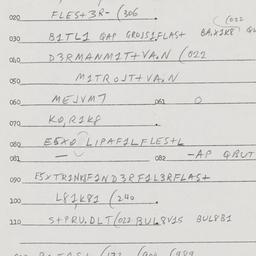 020 FLES+3R- (306
(022
030 B1TL1 QAP GROJS1FLAS+ BA,X1K8
040 D3RMANM1T+VA.N (022
050 M1TROJT+VA.N
060 MEJVM7 061 0
070 KO,R1K8
080 E5X0 LIPAF1LFLES+L
081 — 082 -AP QBUT
090 E5XTR1NKF1ND3RF1L3RFLAS+
100 L81K81 (240
110 S+PRU.DLT(022 BUL8V15 BUL8B1